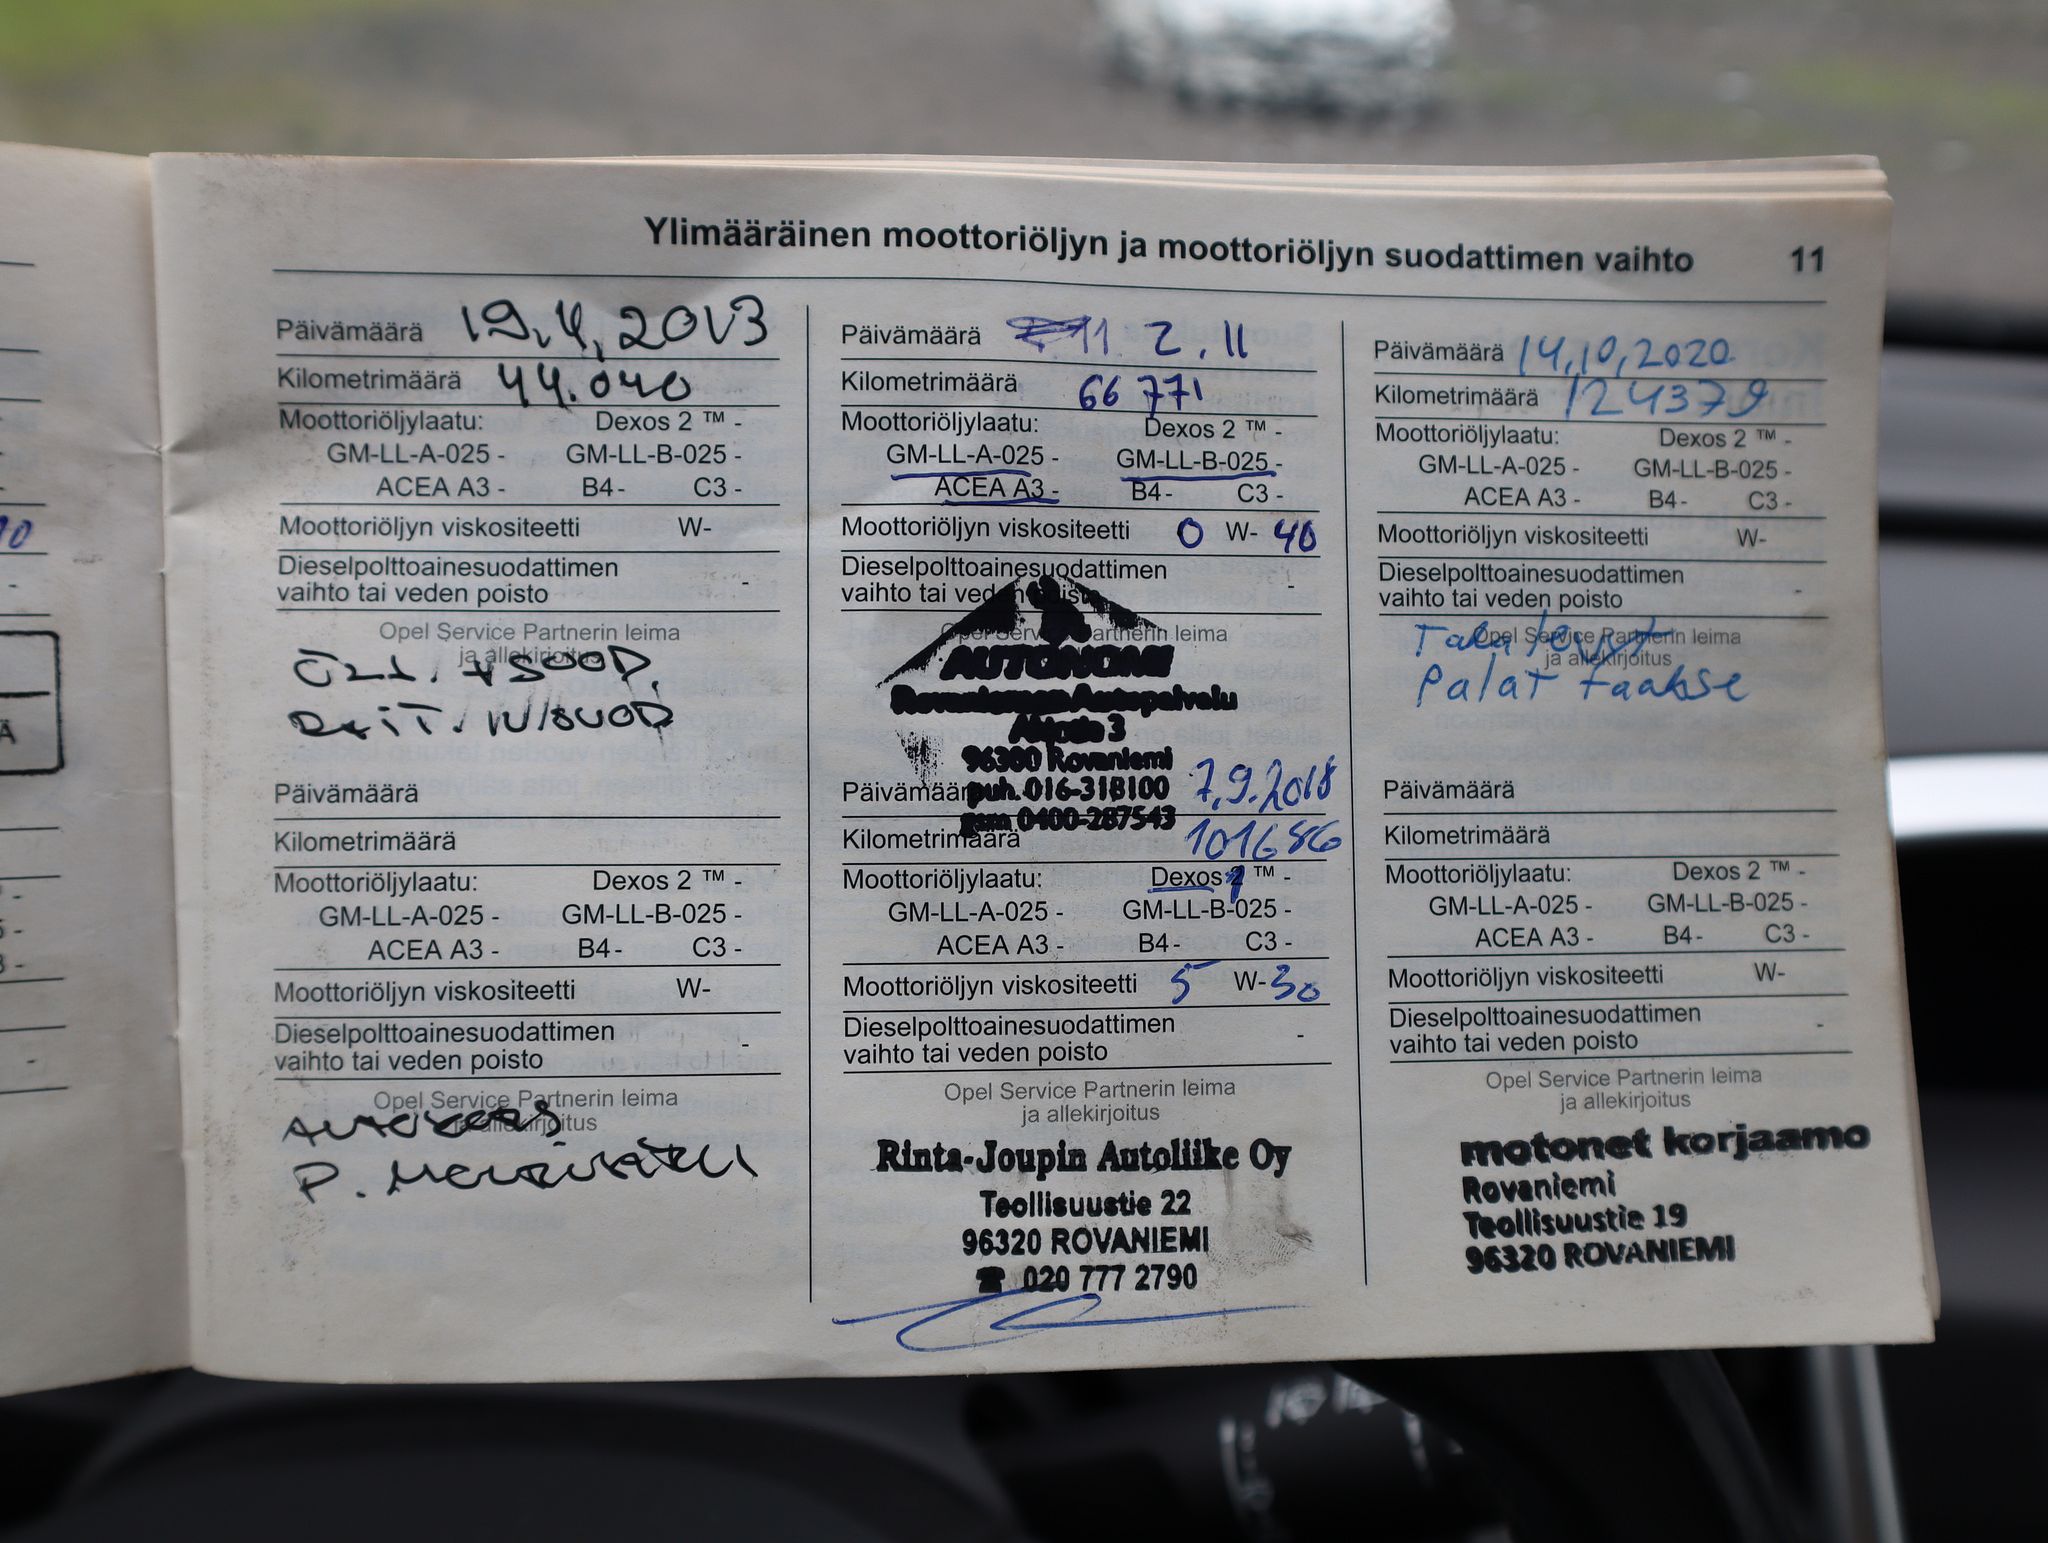 Ylimääräinen moottoriöljyn ja moottoriöljyn suodattimen vaihto 11
Päivämäärä 19.4.2013
Kilometrimäärä 44.040
Moottoriöljylaatu: Dexos 2 ™ -
GM-LL-A-025 - GM-LL-B-025 -
ACEA A3 - B4 - C3 -
Moottoriöljyn viskositeetti W-
Dieselpolttoainesuodattimen -
vaihto tai veden poisto
Opel Service Partnerin leima
ja allekirjoitus
ÖLJ. + SUOD.
RAIT. IL/SUOD
Päivämäärä
Kilometrimäärä
Moottoriöljylaatu: Dexos 2 ™ -
GM-LL-A-025 - GM-LL-B-025 -
ACEA A3 - B4 - C3 -
Moottoriöljyn viskositeetti W-
Dieselpolttoainesuodattimen -
vaihto tai veden poisto
Opel Service Partnerin leima
ja allekirjoitus
P.
Päivämäärä 11 2. 11
Kilometrimäärä 66 771
Moottoriöljylaatu: Dexos 2 ™ -
GM-LL-A-025 - GM-LL-B-025 -
ACEA A3 - B4 - C3 -
Moottoriöljyn viskositeetti 0 W- 40
Dieselpolttoainesuodattimen -
vaihto tai veden poisto
Opel Service Partnerin leima
AUTONOMI
Rovaniemen Autopalvelu
3
96300 Rovaniemi
puh. 016-318100
gsm 0400-287543
Päivämäärä 7.9.2018
Kilometrimäärä 101686
Moottoriöljylaatu: Dexos 1 ™ -
GM-LL-A-025 - GM-LL-B-025 -
ACEA A3 - B4 - C3 -
Moottoriöljyn viskositeetti 5 W- 30
Dieselpolttoainesuodattimen -
vaihto tai veden poisto
Opel Service Partnerin leima
ja allekirjoitus
Rinta-Joupin Autoliike Oy
Teollisuustie 22
96320 ROVANIEMI
☎ 020 777 2790
Päivämäärä 14.10.2020
Kilometrimäärä 124379
Moottoriöljylaatu: Dexos 2 ™ -
GM-LL-A-025 - GM-LL-B-025 -
ACEA A3 - B4 - C3 -
Moottoriöljyn viskositeetti W-
Dieselpolttoainesuodattimen -
vaihto tai veden poisto
Opel Service Partnerin leima
ja allekirjoitus
Taka levyt
Palat taakse
Päivämäärä
Kilometrimäärä
Moottoriöljylaatu: Dexos 2 ™ -
GM-LL-A-025 - GM-LL-B-025 -
ACEA A3 - B4 - C3 -
Moottoriöljyn viskositeetti W-
Dieselpolttoainesuodattimen -
vaihto tai veden poisto
Opel Service Partnerin leima
ja allekirjoitus
motonet korjaamo
Rovaniemi
Teollisuustie 19
96320 ROVANIEMI